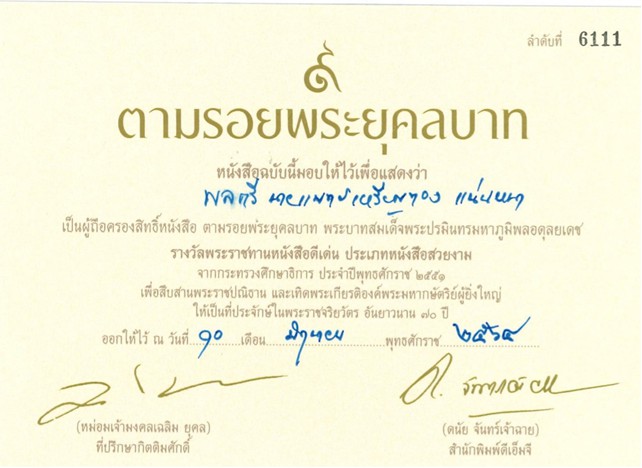 ลำดับที่ 6111
๙
ตามรอยพระยุคลบาท
หนังสือฉบับนี้มอบให้ไว้เพื่อแสดงว่า
พลตรี นายแพทย์เหรียญทอง แน่นหนา
เป็นผู้ถือครองสิทธิ์หนังสือ ตามรอยพระยุคลบาท พระบาทสมเด็จพระปรมินทรมหาภูมิพลอดุลยเดช
รางวัลพระราชทานหนังสือดีเด่น ประเภทหนังสือสวยงาม
จากกระทรวงศึกษาธิการ ประจำปีพุทธศักราช ๒๕๕๑
เพื่อสืบสานพระราชปณิธาน และเทิดพระเกียรติองค์พระมหากษัตริย์ผู้ยิ่งใหญ่
ให้เป็นที่ประจักษ์ในพระราชจริยวัตร อันยาวนาน ๗๐ ปี
ออกให้ไว้ ณ วันที่ ๑๐ เดือน มิถุนายน พุทธศักราช ๒๕๖๔
(หม่อมเจ้ามงคลเฉลิม ยุคล)
ที่ปรึกษากิตติมศักดิ์
(ดนัย จันทร์เจ้าฉาย)
สำนักพิมพ์ดีเอ็มจี